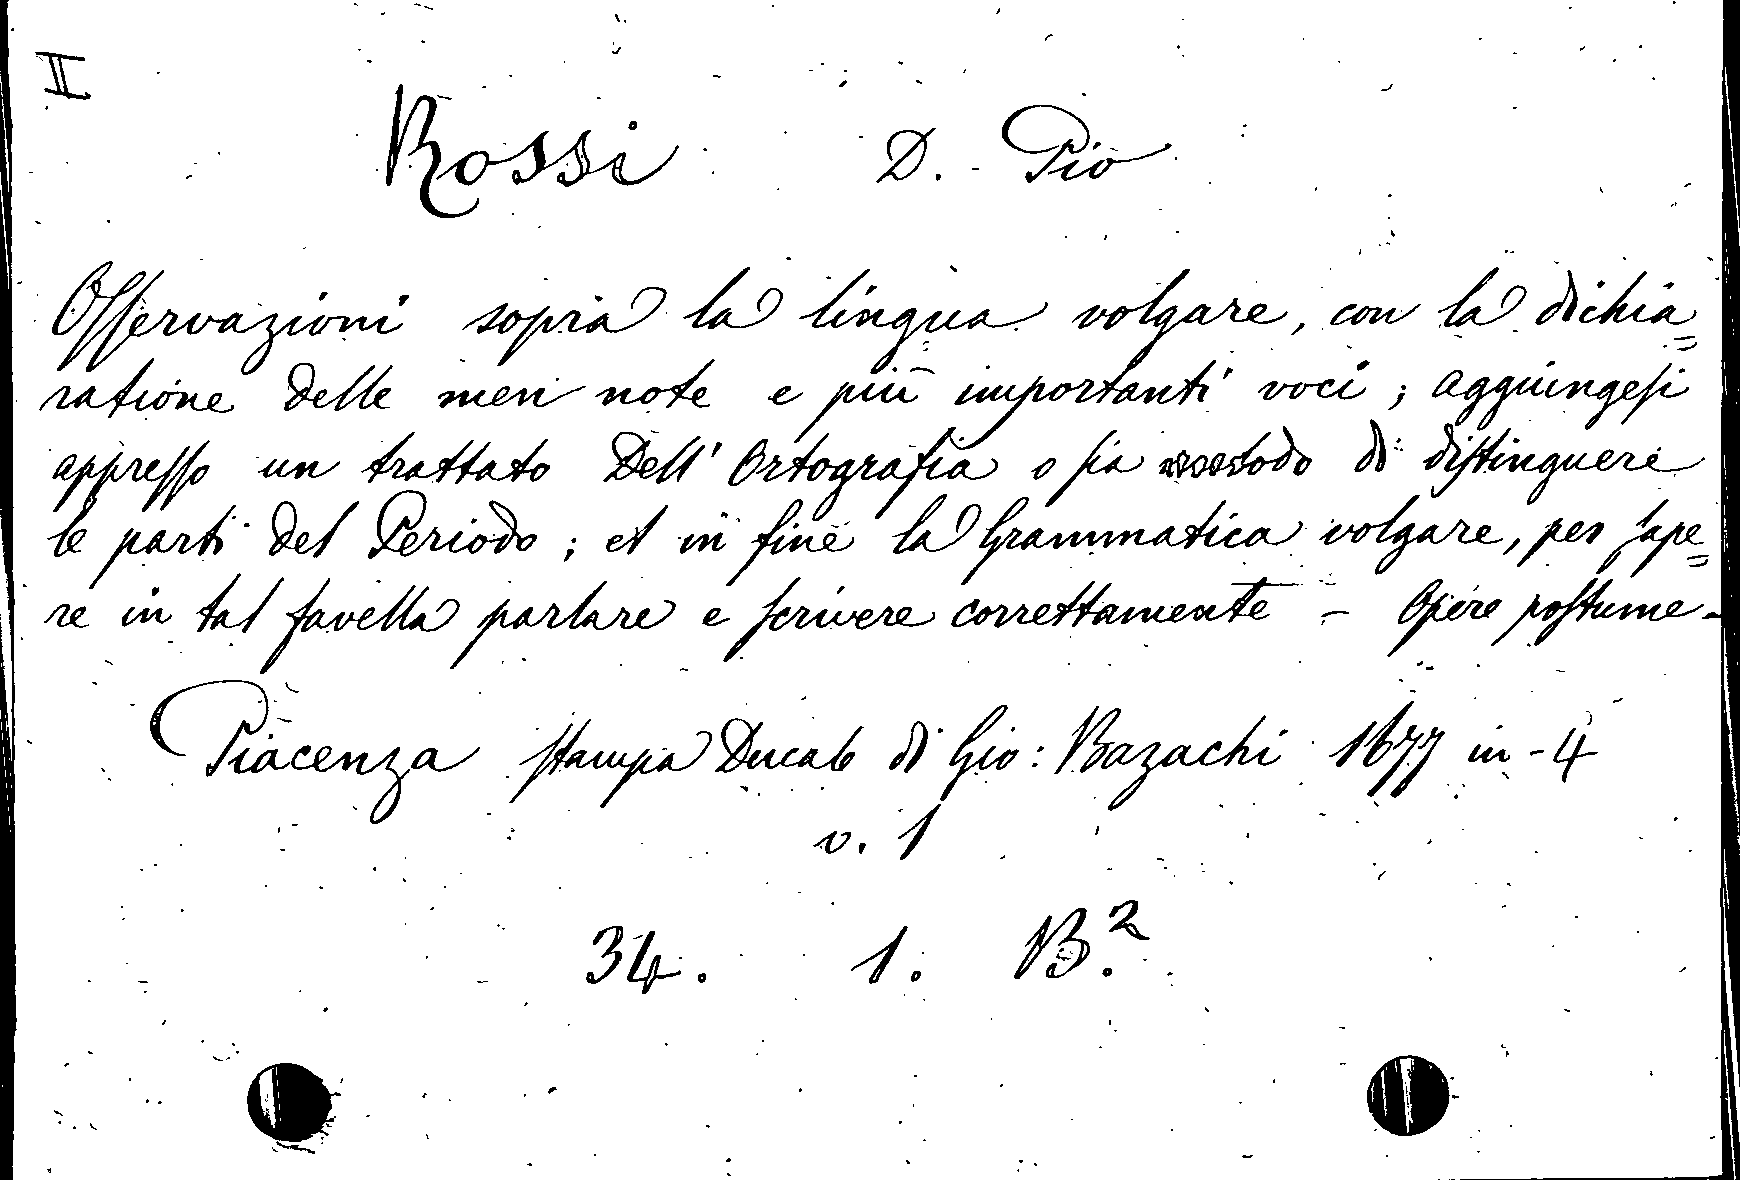 II
Rossi D. Pio
Osservazioni sopra la lingua volgare, con la dichia=
ratione delle men note e più importanti voci; aggiungesi
appresso un trattato Dell' Ortografia o sia metodo di distinguere
le parti del Periodo; et in fine la Grammatica volgare, per sape=
re in tal favella parlare e scrivere correttamente - Opere postume -
Piacenza stampa Ducale di Gio: Bazachi 1677 in-4
v. 1
34. 1. B.²